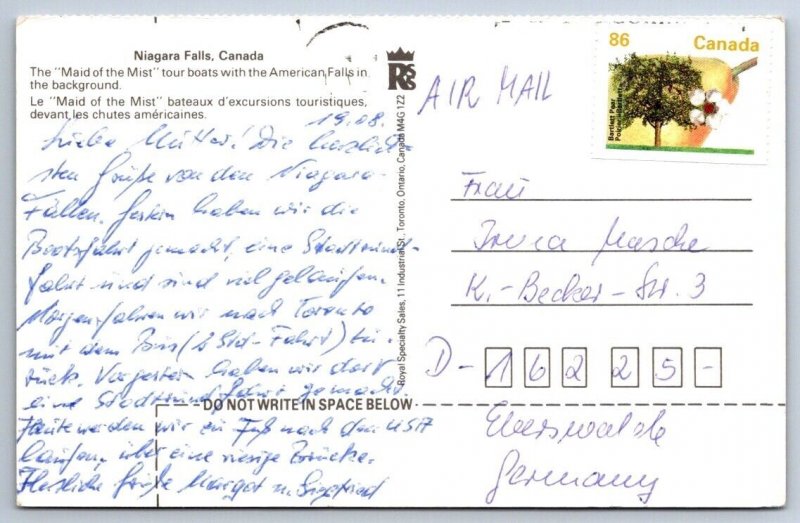 Niagara Falls, Canada
The "Maid of the Mist" tour boats with the American Falls in
the background.
Le "Maid of the Mist" bateaux d'excursions touristiques,
devant les chutes américaines.
19.08.
Liebe Mutter! Die herzlich-
sten Grüße von den Niagara-
Fällen. Gestern haben wir die
Bootsfahrt gemacht, eine Stadtrund-
fahrt und sind viel gelaufen.
Morgen fahren wir nach Toronto
mit dem Bus (2 Std-Fahrt) zu-
rück. Vorgestern haben wir dort
eine Stadtrundfahrt gemacht.
Heute werden wir zu Fuß nach den USA
laufen, über eine riesige Brücke.
Herzliche Grüße Margot u. Siegfried
DO NOT WRITE IN SPACE BELOW
Royal Specialty Sales, 11 Industrial St., Toronto, Ontario, Canada M4G 1Z2
RSS
AIR MAIL
86 Canada
Bartlett Pear
Frau
Irma Masche
K.-Becker-Str. 3
D-16225-
Eberswalde
Germany